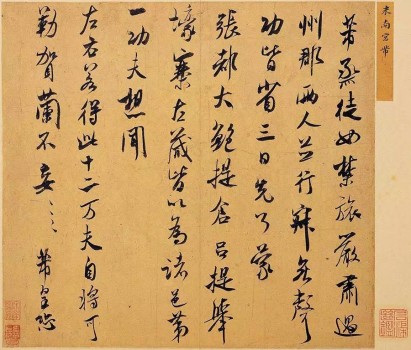 芾烝徒如禁旅嚴肅過
州郡兩人並行寂無聲
功皆省三日先了蒙
張都大鮑提倉呂提舉
壕寨左藏皆以為諸邑第
一功夫想聞
左右若得此十二万夫自將可
勒賀蘭不妄〻〻芾皇恐
米南宮帖